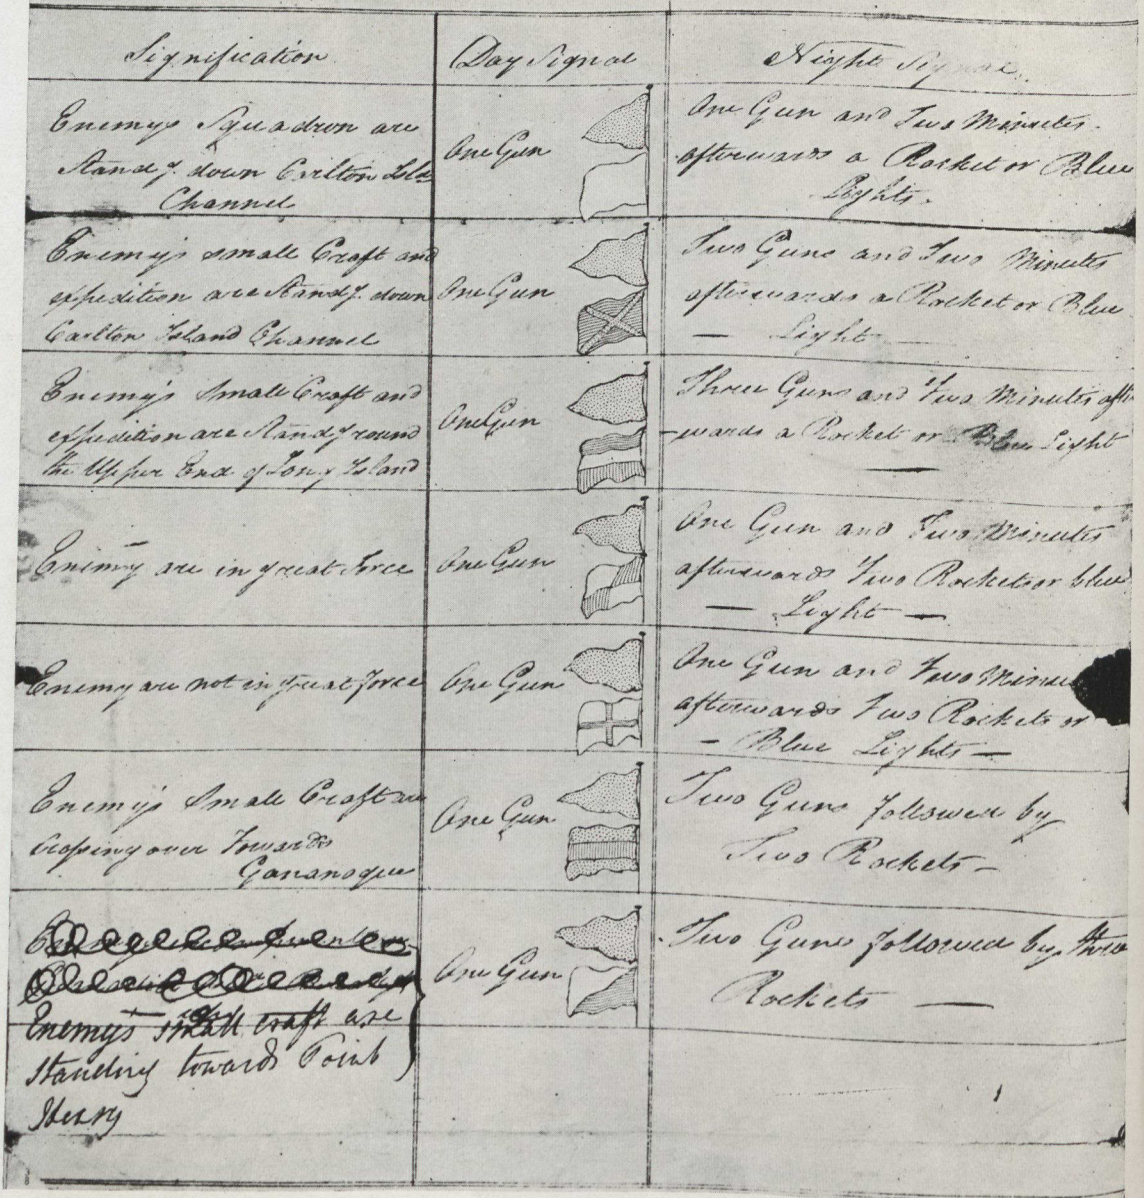 Signification
Day Signal
Night Signal
Enemys Squadron are
Standg. down Carlton Isld
Channel
One Gun
One Gun and Two Minutes
afterwards a Rocket or Blue
Lights.
Enemy's small Craft and
expedition are Standg. down
Carlton Island Channel
One Gun
Two Guns and Two Minutes
afterwards a Rocket or Blue
— Light —
Enemy's Small Craft and
expedition are Standg round
the Upper End of Long Island
One Gun
Three Guns and Two Minutes after
wards a Rocket or Blue Light
Enemy are in great Force
One Gun
One Gun and Two Minutes
afterwards Two Rockets or blue
— Light —
Enemy are not in great force
One Gun
One Gun and Two Minu
afterwards Two Rockets or
— Blue Lights —
Enemy's Small Craft are
crossing over Towards
Gananoque
One Gun
Two Guns followed by
Two Rockets —
Enemy's small craft are
standing towards Point
Henry
One Gun
Two Guns followed by three
Rockets —